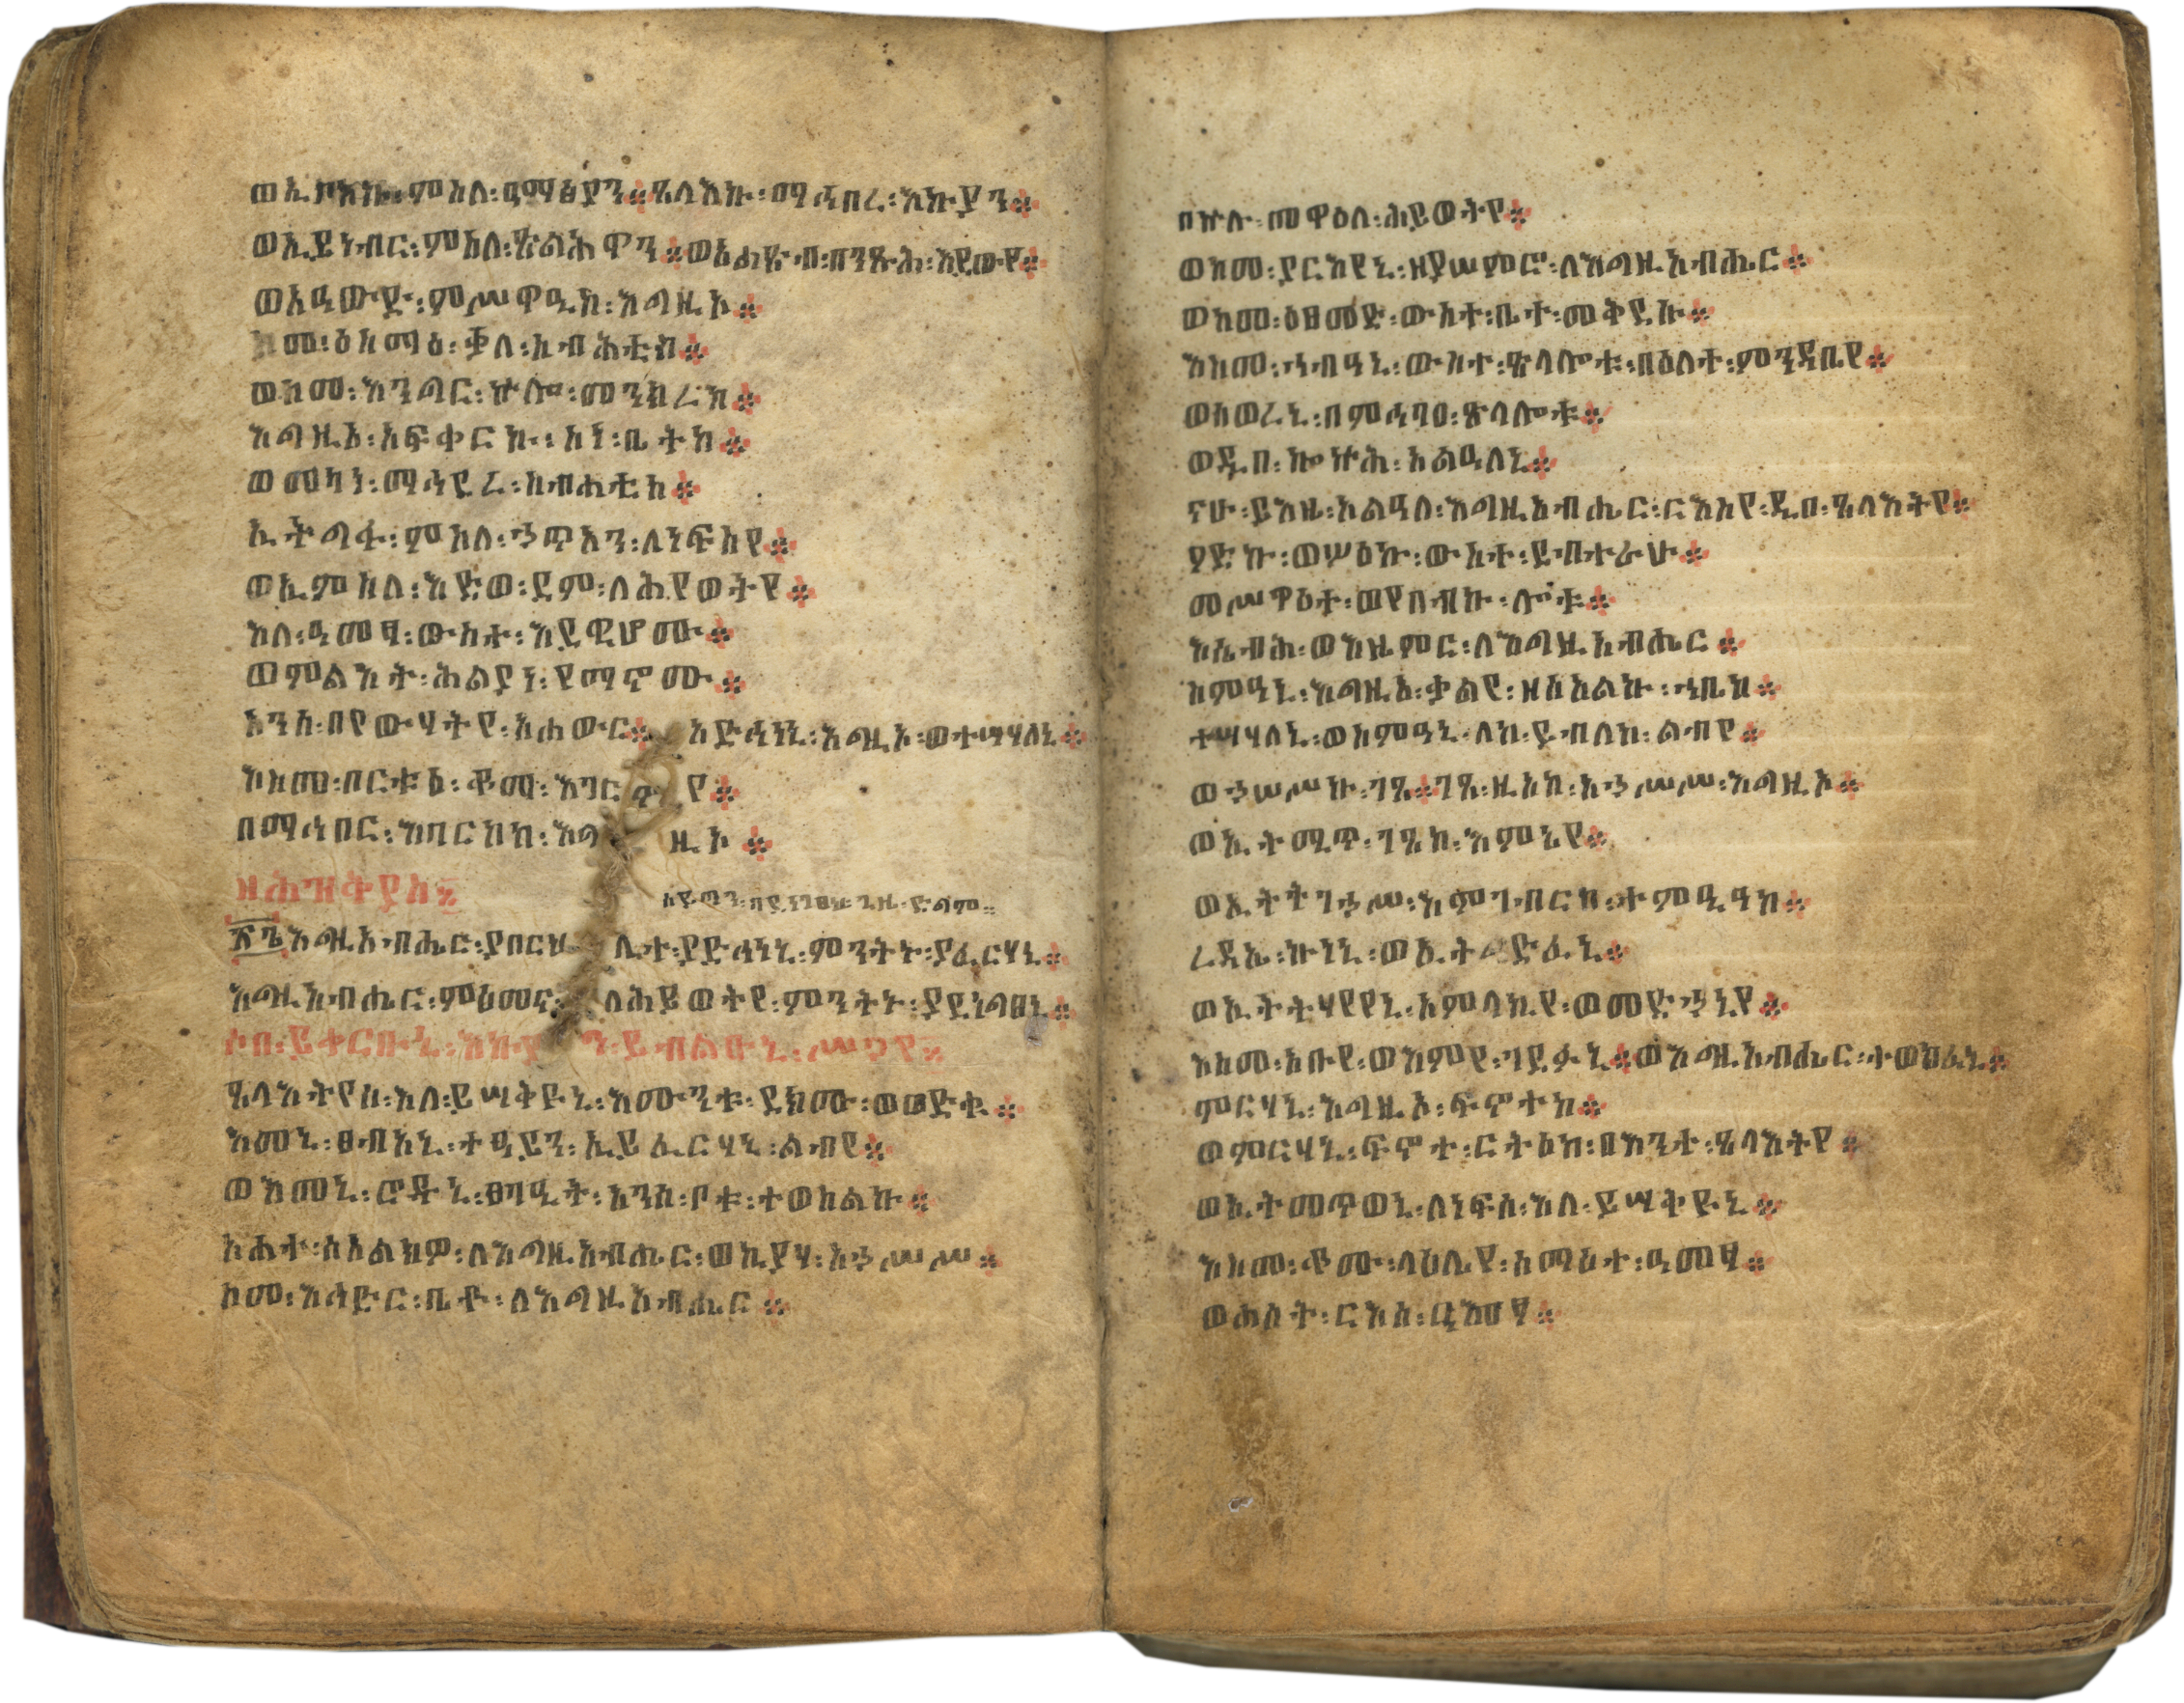 ወኢቦእኩ፡ምስለ፡ዐማፅያን፨ጸላእኩ፡ማኅበረ፡እኩያን፨
ወኢይነብር፡ምስለ፡ጽልሕዋን፨ወአሐፅብ፡በንጹሕ፡እደውየ፨
ወአዐውድ፡ምሥዋዒከ፡እግዚኦ፨
ከመ፡ዕስማዕ፡ቃለ፡ስብሐቲከ፨
ወከመ፡እንግር፡ኵሎ፡መንክረከ፨
እግዚኦ፡አፍቀርኩ፡ሥነ፡ቤትከ፨
ወመካነ፡ማኅደረ፡ስብሐቲከ፨
ኢትግፋ፡ምስለ፡ኃጥአን፡ለነፍስየ፨
ወኢምስለ፡እድወ፡ደም፡ለሕይወትየ፨
እለ፡ዐመፃ፡ውስተ፡እደዊሆሙ፨
ወምልእት፡ሕልያነ፡የማኖሙ፨
አንሰ፡በየውሃትየ፡አሐውር፨ አድኅነኒ፡እግዚኦ፡ወተሣሃለኒ፨
እስመ፡በርቱዕ፡ቆማ፡እገርየ፨
በማኅበር፡እባርከከ፡እግ ዚኦ፨
ዘሕዝቅያስ፨
፳፮እግዚአብሔር፡ያበርህ ሊተ፡ያድኅነኒ፡ምንትኑ፡ያፈርሃኒ፨
እግዚአብሔር፡ምእመኑ፡ ለሕይወትየ፡ምንትኑ፡ያደነግፀኒ፨
ሶበ፡ይቀርቡኒ፡እኩያን፡ይብልዑኒ፡ሥጋየ፨
ጸላእትየሰ፡እለ፡ይሣቅዩኒ፡እሙንቱ፡ደክሙ፡ወወድቁ፨
እመኒ፡ፀብአኒ፡ተዓይን፡ኢይፈርሃኒ፡ልብየ፨
ወእመኒ፡ሮዱኒ፡ፀባዒት፡አንሰ፡ቦቱ፡ተወከልኩ፨
አሐተ፡ሰአልክዎ፡ለእግዚአብሔር፡ወኪያሃ፡አኃሥሥ፨
ከመ፡እኅድር፡ቤቶ፡ለእግዚአብሔር፨
በኵሉ፡መዋዕለ፡ሕይወትየ፨
ወከመ፡ያርእየኒ፡ዘያሠምሮ፡ለእግዚአብሔር፨
ወከመ፡ዕፀመድ፡ውስተ፡ቤተ፡መቅደሱ፨
እስመ፡ኀብዓኒ፡ውስተ፡ጽላሎቱ፡በዕለተ፡ምንዳቤየ፨
ወሰወረኒ፡በምኅባዐ፡ጽላሎቱ፨
ወዲበ፡ኰኵሕ፡አልዐለኒ፨
ናሁ፡ይእዜ፡አልዓለ፡እግዚአብሔር፡ርእስየ፡ዲበ፡ጸላእትየ፨
ዖድኩ፡ወሦዕኩ፡ውስተ፡ደብተራሁ፨
መሥዋዕተ፡ወየበብኩ፡ሎቱ፨
እሴብሕ፡ወእዜምር፡ለእግዚአብሔር፨
ስምዓኒ፡እግዚኦ፡ቃልየ፡ዘሰአልኩ፡ኀቤከ፨
ተሣሃለኒ፡ወስምዓኒ፡ለከ፡ይብለከ፡ልብየ፨
ወኃሠሥኩ፡ገጸ፨ገጸ፡ዚአከ፡አኃሥሥ፡እግዚኦ፨
ወኢትሚጥ፡ገጸከ፡እምኔየ፨
ወኢትትገኃሥ፡እምገብርከ፡ተምዒዓከ፨
ረዳኤ፡ኩነኒ፡ወኢትግድፈኒ፨
ወኢትትሃየየኒ፡አምላኪየ፡ወመድኃኒየ፨
እስመ፡አቡየ፡ወእምየ፡ገደፉኒ፨ወእግዚአብሔር፡ተወክፈኒ፨
ምርሃኒ፡እግዚኦ፡ፍኖተከ፨
ወምርሃኒ፡ፍኖተ፡ርትዕከ፡በእንተ፡ጸላእትየ፨
ወኢትመጥወኒ፡ለነፍሰ፡እለ፡ይሣቅዩኒ፨
እስመ፡ቆሙ፡ላዕሌየ፡ሰማዕተ፡ዐመፃ፨
ወሐሰት፡ርእሰ፡ዐመፃ፨